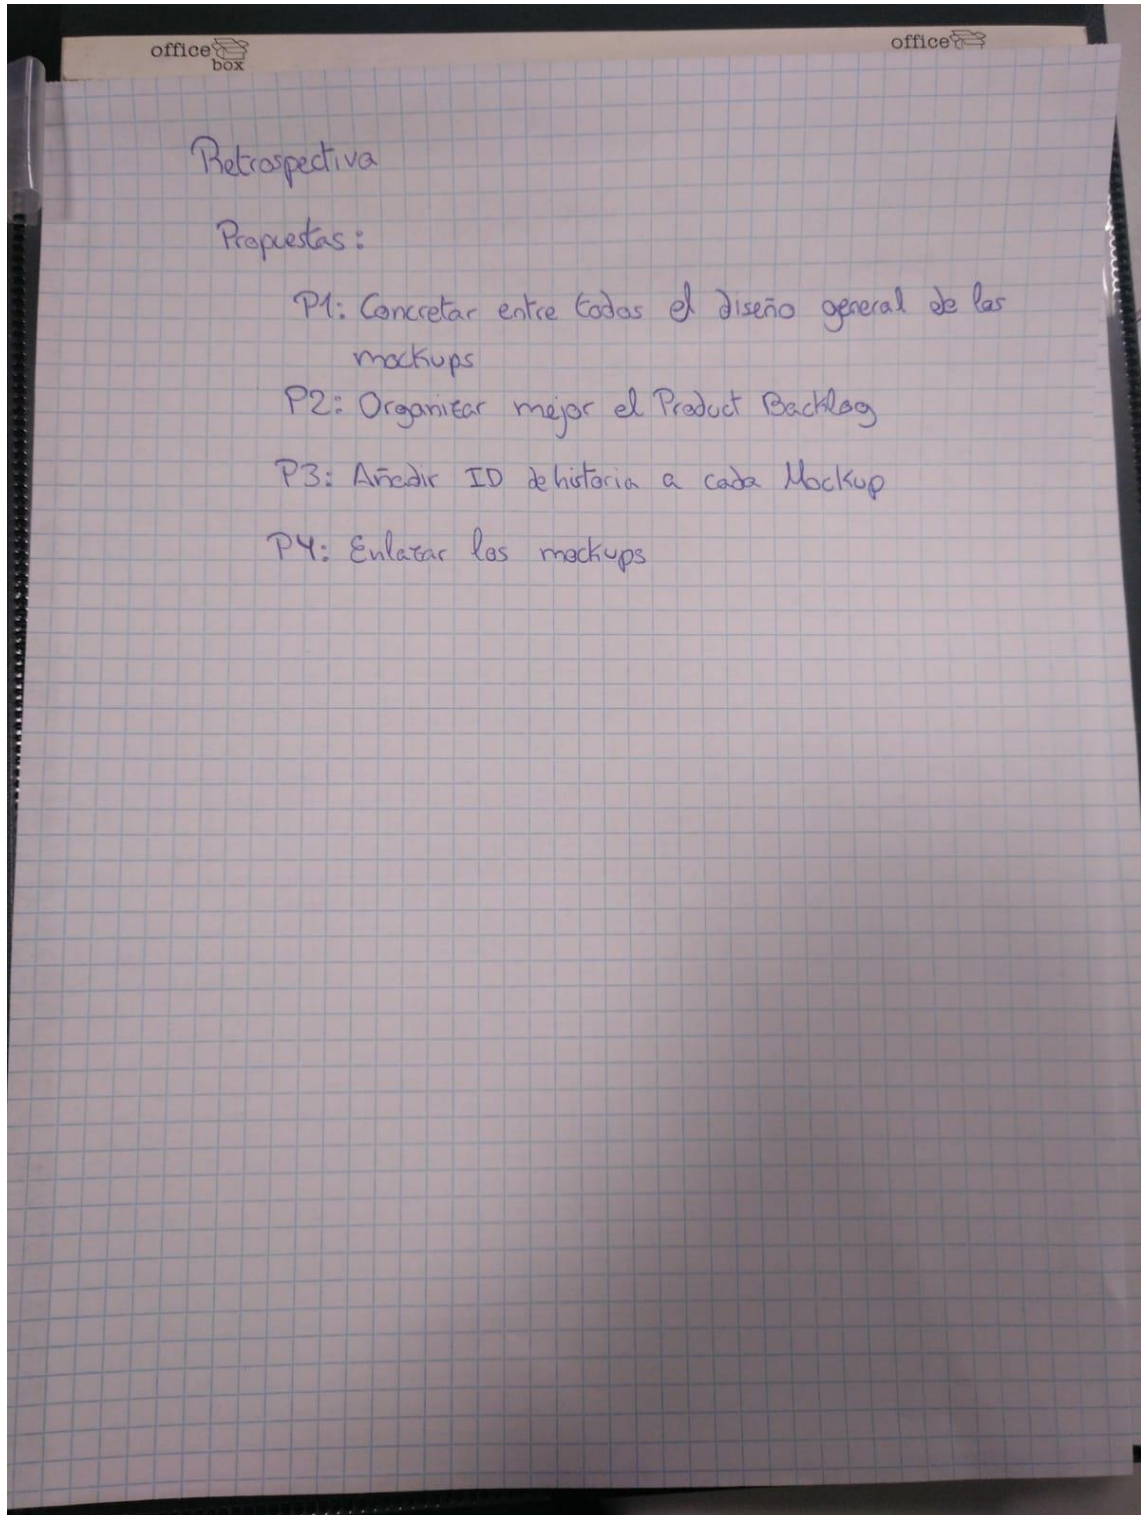 office
box
office
Retrospectiva
Propuestas:
P1: Concretar entre todos el diseño general de los
mockups
P2: Organizar mejor el Product Backlog
P3: Añadir ID de historia a cada Mockup
P4: Enlazar los mockups